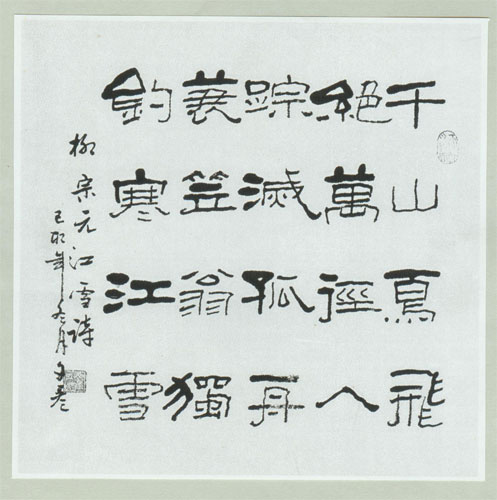 千山鳥飛
絕萬徑人
踪滅孤舟
蓑笠翁獨
釣寒江雪
柳宗元江雪詩
己卯年冬月